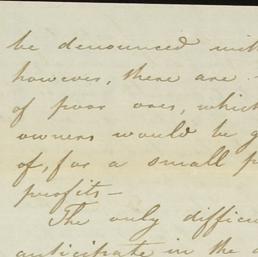 be denounced with
however, there are
of poor ones, which
owners would be
of, for a small
profits—
The only
anticipate in the